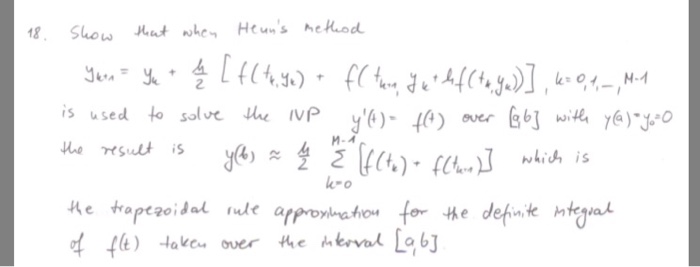 18. Show that when Heun's method
y_{k+1} = y_k + h/2 [f(t_k, y_k) + f(t_{k+1}, y_k + hf(t_k, y_k))], k=0,1,..., M-1
is used to solve the IVP y'(t) = f(t) over [a,b] with y(a)=y_0=0
the result is y(b) ≈ h/2 Σ_{k=0}^{M-1} [f(t_k) + f(t_{k+1})] which is
the trapezoidal rule approximation for the definite integral
of f(t) taken over the interval [a,b].